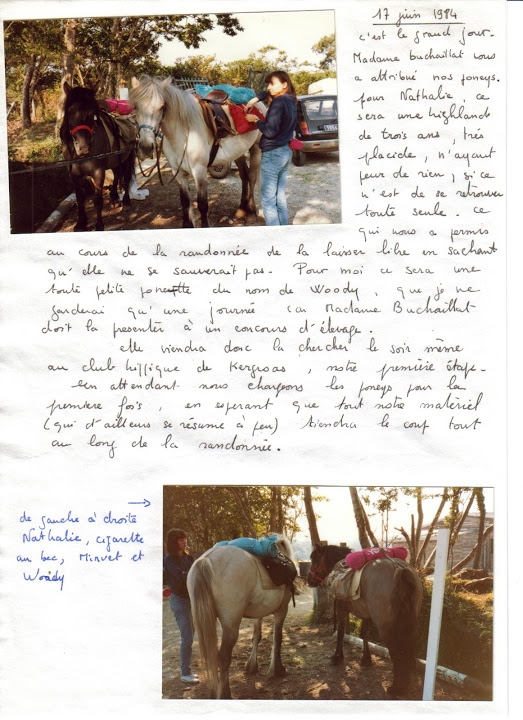 17 juin 1984
c'est le grand jour.
Madame Buchaillat nous
a attribué nos poneys.
pour Nathalie, ce
sera une highlands
de trois ans, très
placide, n'ayant
peur de rien, si ce
n'est de se retrouver
toute seule. ce
qui nous a permis
au cours de la randonnée de la laisser libre en sachant
qu'elle ne se sauverait pas. Pour moi ce sera une
toute petite ponette du nom de Woody, que je ne
garderai qu'une journée car Madame Buchaillat
doit la presenter à un concours d'élevage.
elle viendra donc la chercher le soir même
au club hippique de Kergroas, notre première étape.
en attendant nous chargeons les poneys pour la
premiere fois, en esperant que tout notre matériel
(qui d'ailleurs se résume à peu) tiendra le coup tout
au long de la randonnée.
de gauche à droite
Nathalie, cigarette
au bec, Minvet et
Woody